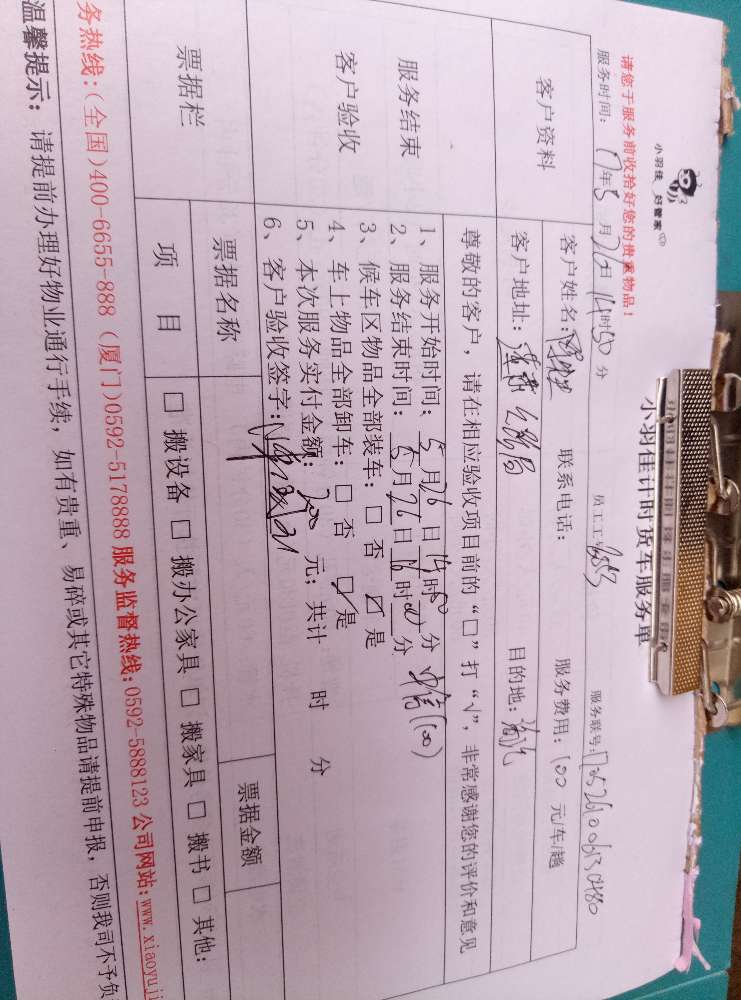 小羽佳 好管家
小羽佳计时货车服务单
请您于服务前收拾好您的贵重物品!
服务时间: 17年5月26日14时50分 员工工号 服务联号:
客户资料
客户姓名: 联系电话: 服务费用: 100 元/车/趟
客户地址: 目的地:
服务结束
客户验收
尊敬的客户,请在相应验收项目前的“□”打“√”,非常感谢您的评价和意见
1、服务开始时间: 5月26日14时50分
2、服务结束时间: 5月26日16时00分
3、候车区物品全部装车: □ 否 ☑ 是
4、车上物品全部卸车: □ 否 ☑ 是
5、本次服务实付金额: 200 元; 共计 时 分
6、客户验收签字:
票据栏
票据名称 票据金额
项 目 □ 搬设备 □ 搬办公家具 □ 搬家具 □ 搬书 □ 其他:
务热线:(全国)400-6655-888 (厦门)0592-5178888 服务监督热线:0592-5888123 公司网站:www.xiaoyuji
温馨提示: 请提前办理好物业通行手续,如有贵重、易碎或其它特殊物品请提前申报,否则我司不予负